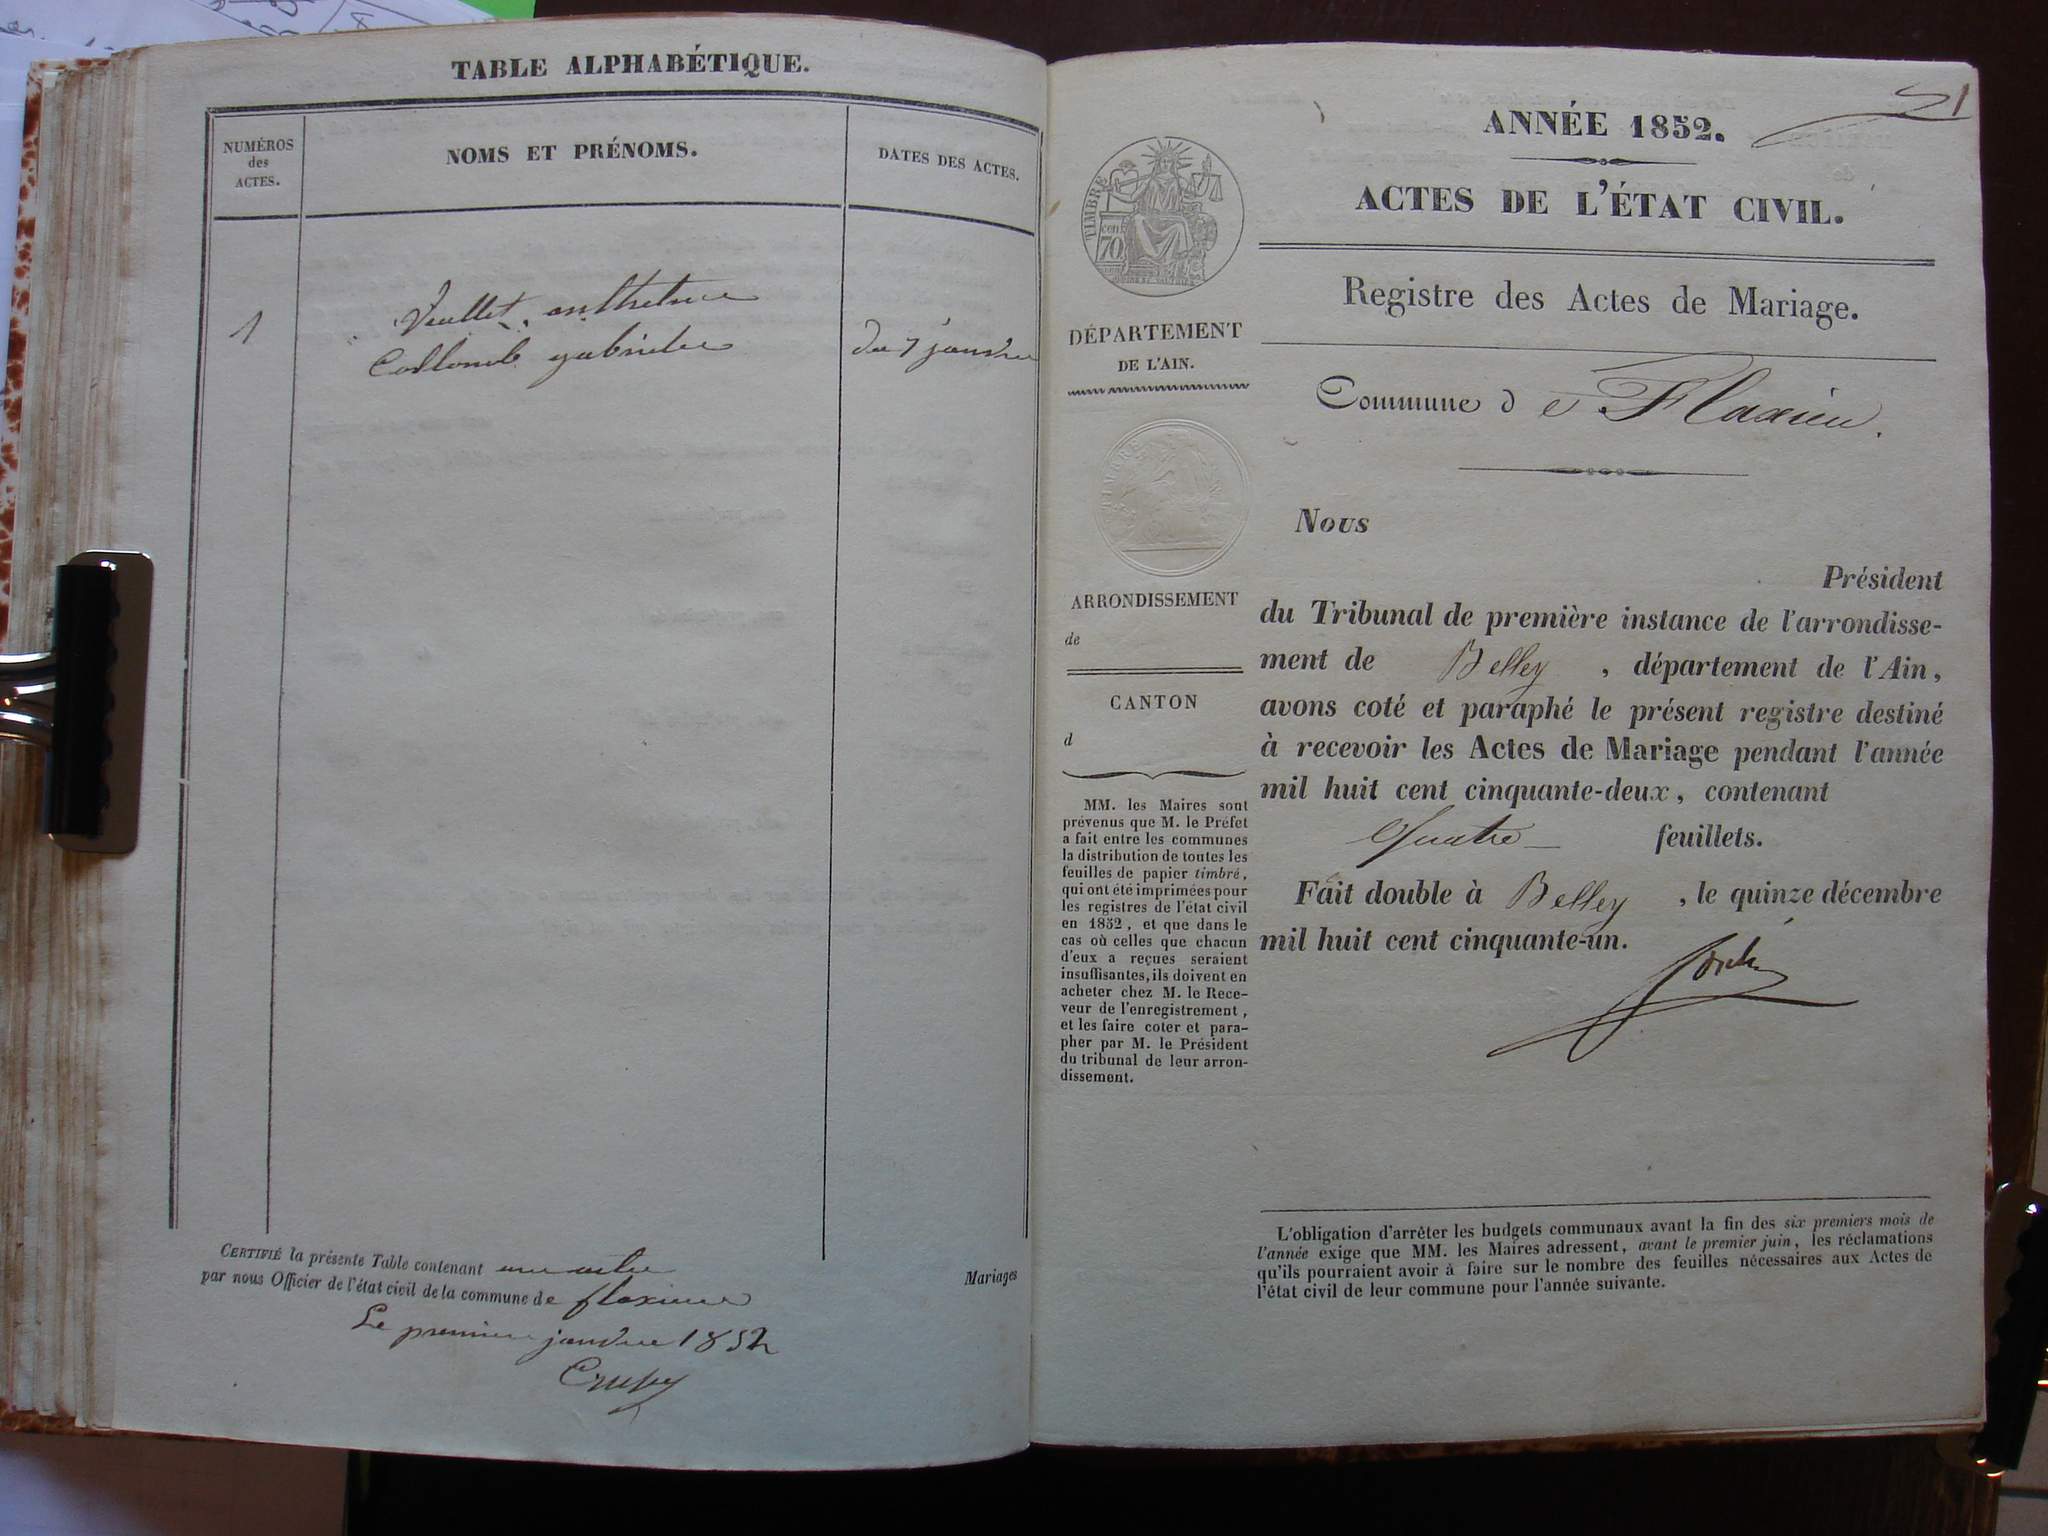 TABLE ALPHABÉTIQUE.
NUMÉROS
des
ACTES.
NOMS ET PRÉNOMS.
DATES DES ACTES.
1
Vuillet
Collomb gabrielle
du 7 janvier
CERTIFIÉ la présente Table contenant une acte
Mariages
par nous Officier de l'état civil de la commune de flaxieu
Le premier janvier 1852
Crussy
1
ANNÉE 1852.
ACTES DE L'ÉTAT CIVIL.
Registre des Actes de Mariage.
Commune de Flaxieu.
TIMBRE
cent
70
DÉPARTEMENT
DE L'AIN.
TIMBRE
ARRONDISSEMENT
de
CANTON
d
MM. les Maires sont
prévenus que M. le Préfet
a fait entre les communes
la distribution de toutes les
feuilles de papier timbré,
qui ont été imprimées pour
les registres de l'état civil
en 1852, et que dans le
cas où celles que chacun
d'eux a reçues seraient
insuffisantes, ils doivent en
acheter chez M. le Rece-
veur de l'enregistrement,
et les faire coter et para-
pher par M. le Président
du tribunal de leur arron-
dissement.
Nous
Président
du Tribunal de première instance de l'arrondisse-
ment de Belley, département de l'Ain,
avons coté et paraphé le présent registre destiné
à recevoir les Actes de Mariage pendant l'année
mil huit cent cinquante-deux, contenant
Quatre feuillets.
Fait double à Belley, le quinze décembre
mil huit cent cinquante-un.
L'obligation d'arrêter les budgets communaux avant la fin des six premiers mois de
l'année exige que MM. les Maires adressent, avant le premier juin, les réclamations
qu'ils pourraient avoir à faire sur le nombre des feuilles nécessaires aux Actes de
l'état civil de leur commune pour l'année suivante.